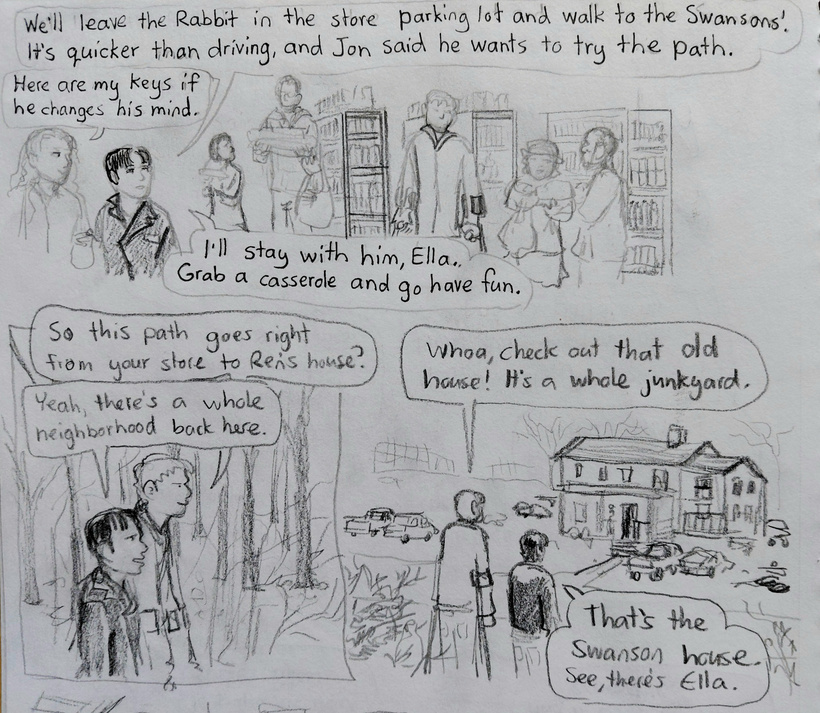 We'll leave the Rabbit in the store parking lot and walk to the Swansons'.
It's quicker than driving, and Jon said he wants to try the path.
Here are my keys if
he changes his mind.
I'll stay with him, Ella.
Grab a casserole and go have fun.
So this path goes right
from your store to Ren's house?
Yeah, there's a whole
neighborhood back here.
Whoa, check out that old
house! It's a whole junkyard.
That's the
Swanson house.
See, there's Ella.